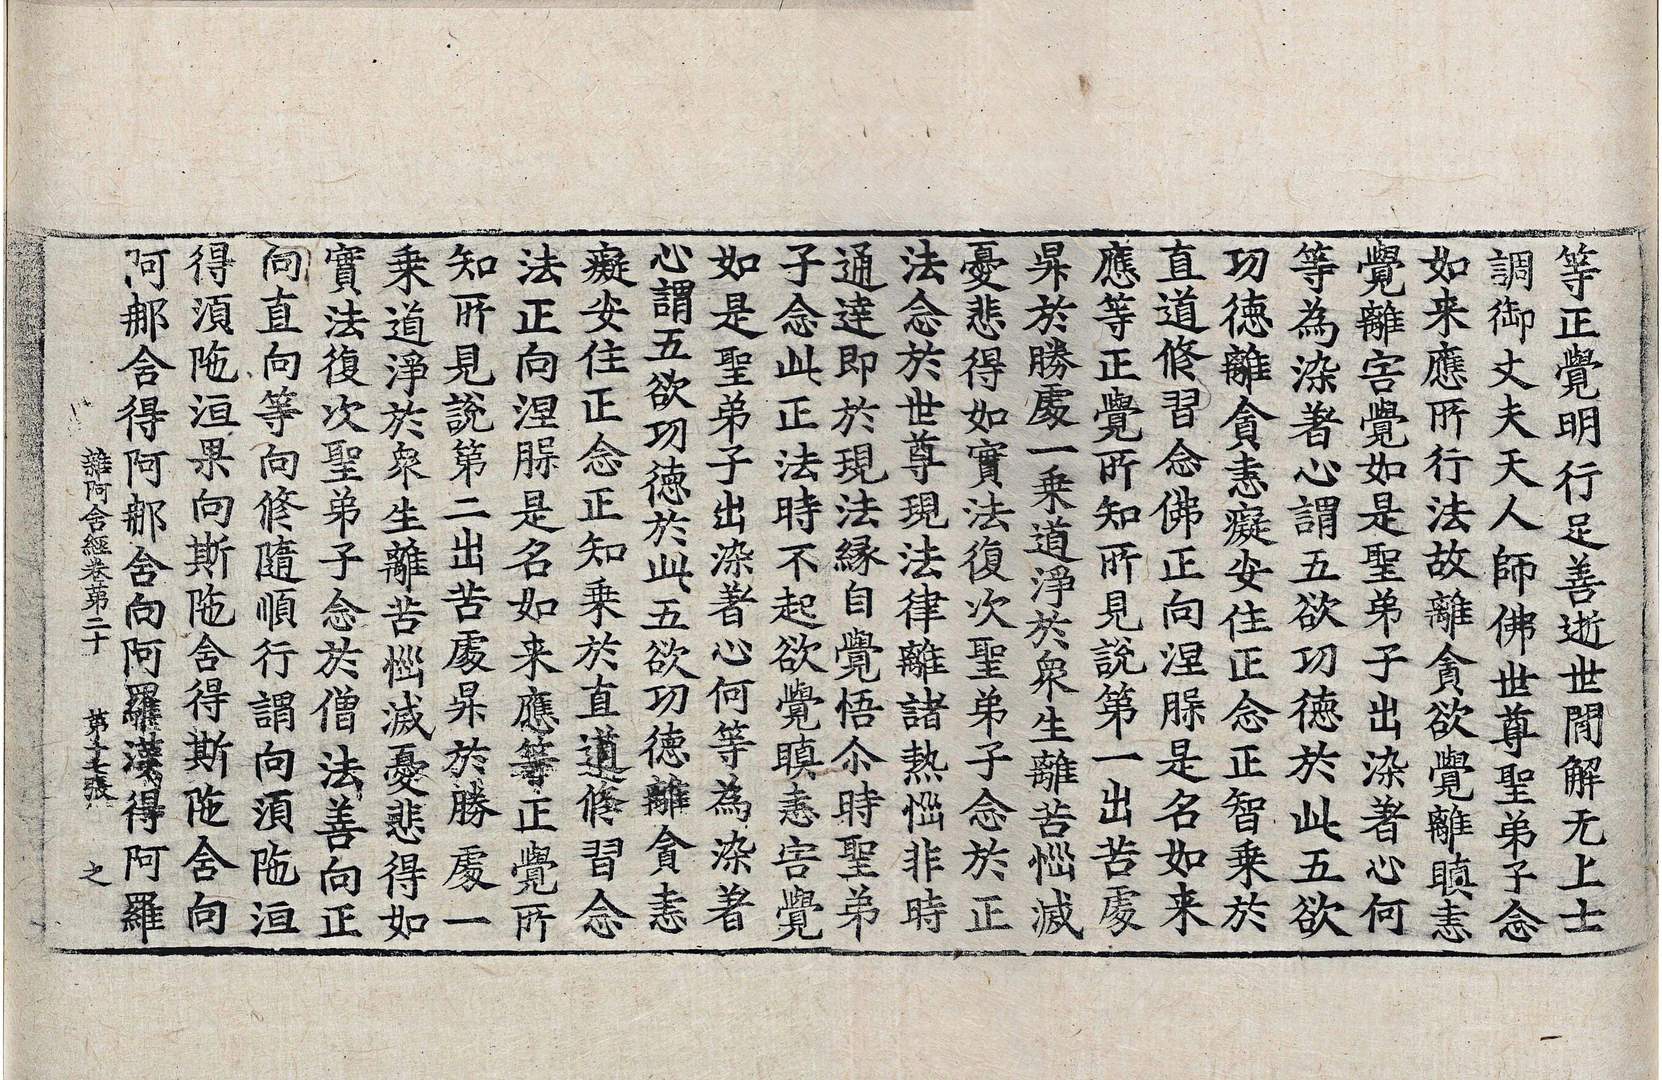 等正覺明行足善逝世間解无上士
調御丈夫天人師佛世尊聖弟子念
如来應所行法故離貪欲覺離瞋恚
覺離害覺如是聖弟子出染著心何
等為染著心謂五欲功德於此五欲
功德離貪恚癡安住正念正智乗於
直道修習念佛正向涅脲是名如来
應等正覺所知所見說第一出苦處
昇於勝處一乗道淨於衆生離苦惱滅
憂悲得如實法復次聖弟子念於正
法念於世尊現法律離諸熱惱非時
通達即於現法緣自覺悟尒時聖弟
子念此正法時不起欲覺瞋恚害覺
如是聖弟子出染著心何等為染著
心謂五欲功德於此五欲功德離貪恚
癡安住正念正知乗於直道修習念
法正向涅脲是名如来應等正覺所
知所見說第二出苦處昇於勝處一
乗道淨於衆生離苦惱滅憂悲得如
實法復次聖弟子念於僧法善向正
向直向等向修隨順行謂向湏陁洹
得湏陁洹果向斯陁含得斯陁含向
阿那含得阿那含向阿羅漢得阿羅
雜阿含經卷第二十 第十七張 之